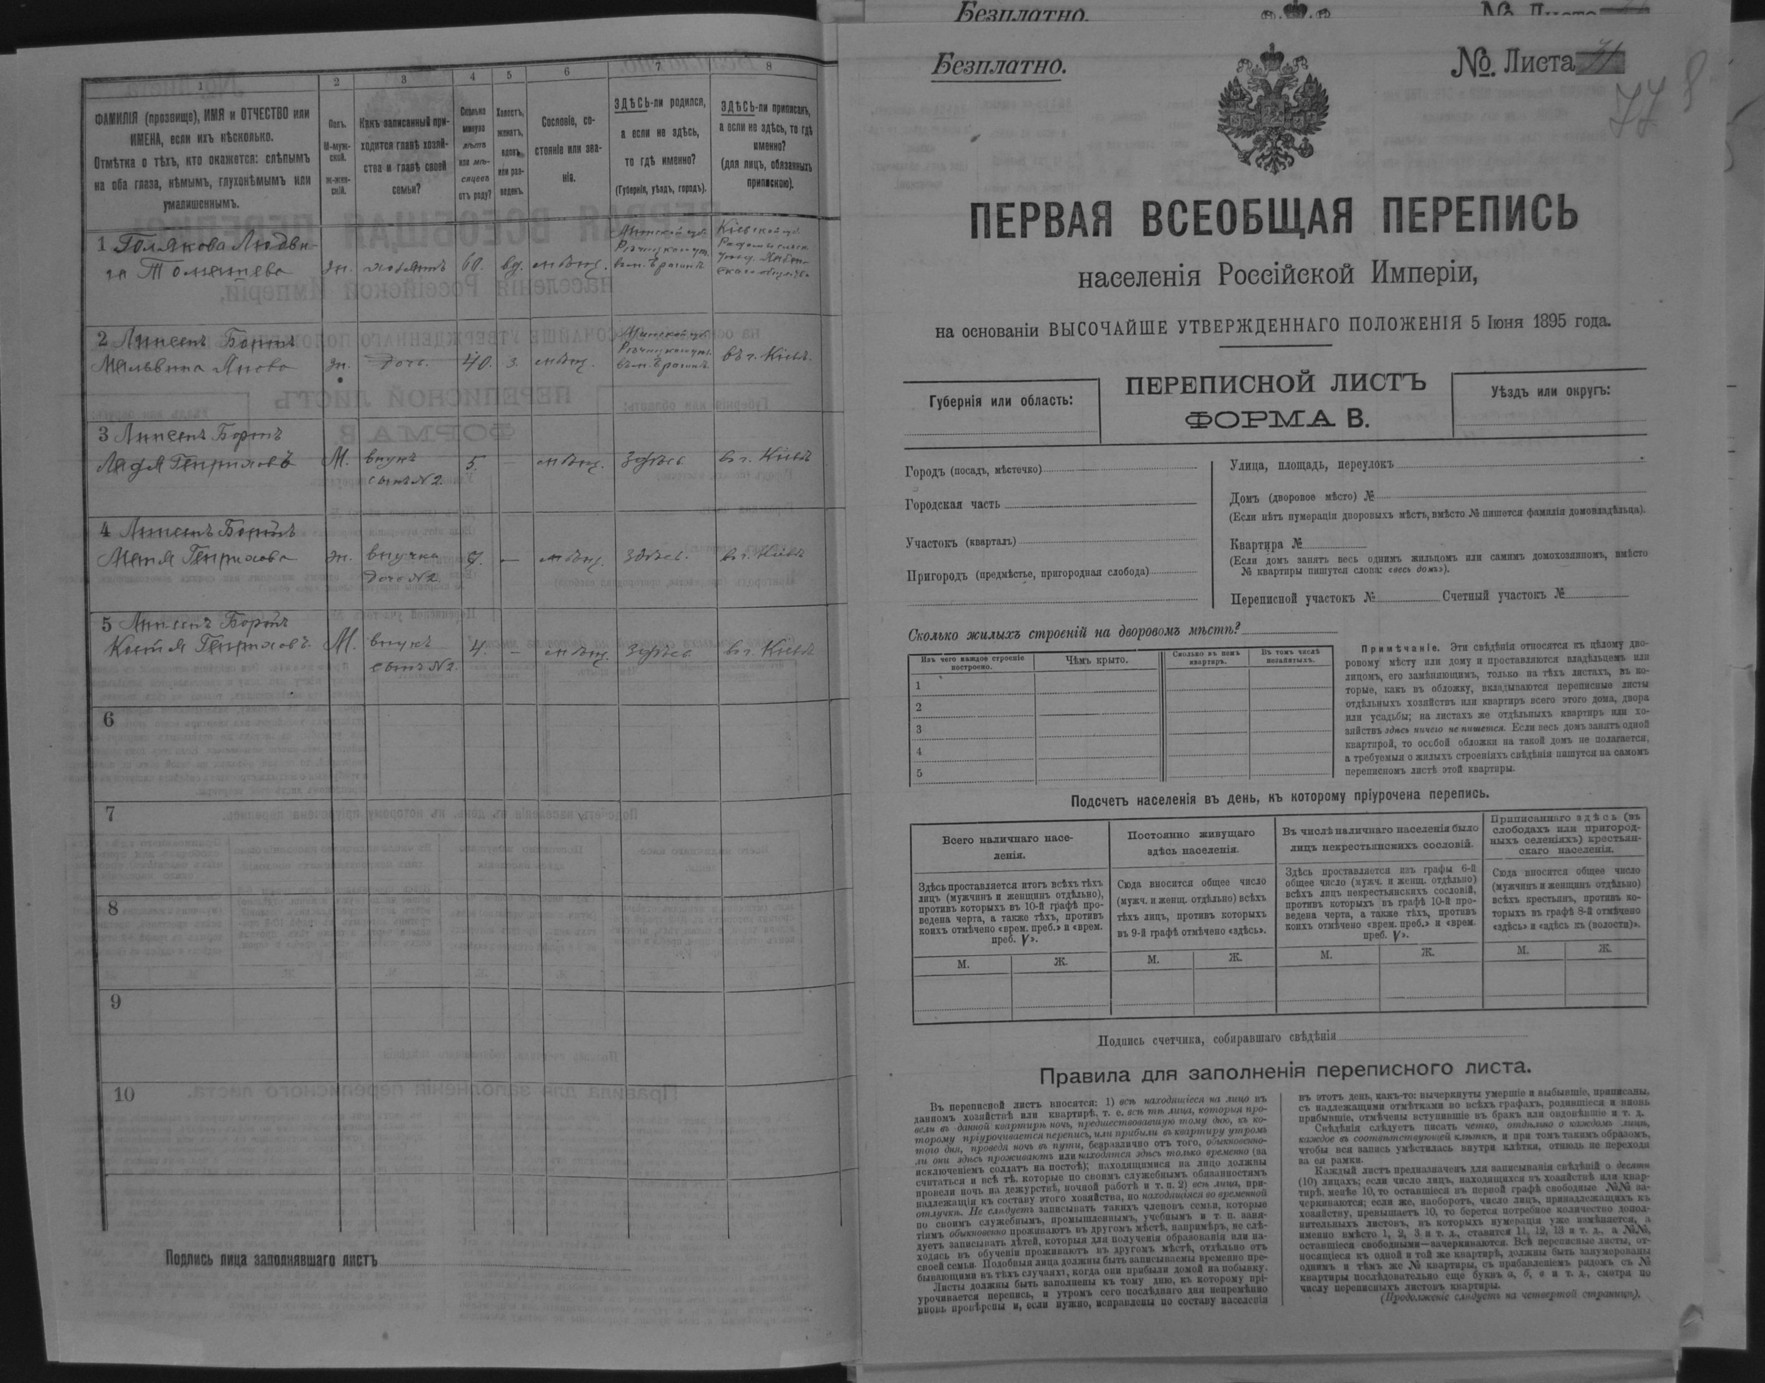 1
2
3
4
5
6
7
8
ФАМИЛІЯ (прозвище), ИМЯ и ОТЧЕСТВО или
ИМЕНА, если ихъ нѣсколько.
Отмѣтка о тѣхъ, кто окажется: слѣпымъ
на оба глаза, нѣмымъ, глухонѣмымъ или
умалишеннымъ.
Полъ.
М-муж-
ской.
ж-жен-
скій.
Какъ записанный при-
ходится главѣ хозяй-
ства и главѣ своей
семьи?
Сколько
минуло
лѣтъ
или мѣ-
сяцевъ
отъ роду?
Холостъ,
женатъ,
вдовъ
или раз-
веденъ.
Сословіе, со-
стояніе или зва-
ніе.
ЗДѢСЬ-ли родился,
а если не здѣсь,
то гдѣ именно?
(Губернія, уѣздъ, городъ).
ЗДѢСЬ-ли приписанъ,
а если не здѣсь, то гдѣ
именно?
(для лицъ, обязанныхъ
припискою).
1
60.
вд.
2
дочь.
40.
з.
въ г. Кіевѣ.
3
М.
внукъ
сынъ N 2.
5.
здѣсь
въ г. Кіевѣ
4
внучка
дочь N 2.
здѣсь.
въ г. Кіевѣ
5
М.
внукъ
сынъ N 2.
4.
здѣсь
въ г. Кіевѣ
6
7
8
9
10
Подпись лица заполнявшаго листъ
Безплатно.
№ Листа
Безплатно.
№ Листа
77
ПЕРВАЯ ВСЕОБЩАЯ ПЕРЕПИСЬ
населенія Россійской Имперіи,
на основаніи ВЫСОЧАЙШЕ УТВЕРЖДЕННАГО ПОЛОЖЕНІЯ 5 Іюня 1895 года.
Губернія или область:
ПЕРЕПИСНОЙ ЛИСТЪ
ФОРМА В.
Уѣздъ или округъ:
Городъ (посадъ, мѣстечко)
Городская часть
Участокъ (кварталъ)
Пригородъ (предмѣстье, пригородная слобода)
Улица, площадь, переулокъ
Домъ (дворовое мѣсто) №
(Если нѣтъ нумераціи дворовыхъ мѣстъ, вмѣсто № пишется фамилія домовладѣльца).
Квартира №
(Если домъ занятъ весь однимъ жильцомъ или самимъ домохозяиномъ, вмѣсто
№ квартиры пишутся слова: «весь домъ»).
Переписной участокъ № Счетный участокъ №
Сколько жилыхъ строеній на дворовомъ мѣстѣ?
Изъ чего каждое строеніе
построено.
Чѣмъ крыто.
Сколько въ немъ
квартиръ.
Въ томъ числѣ
незанятыхъ.
1
2
3
4
5
Примѣчаніе. Эти свѣдѣнія относятся къ цѣлому дво-
ровому мѣсту или дому и проставляются владѣльцемъ или
лицомъ, его замѣняющимъ, только на тѣхъ листахъ, въ ко-
торые, какъ въ обложку, вкладываются переписные листы
отдѣльныхъ хозяйствъ или квартиръ всего этого дома, двора
или усадьбы; на листахъ же отдѣльныхъ квартиръ или хо-
зяйствъ здѣсь ничего не пишется. Если весь домъ занятъ одной
квартирой, то особой обложки на такой домъ не полагается,
а требуемыя о жилыхъ строеніяхъ свѣдѣнія пишутся на самомъ
переписномъ листѣ этой квартиры.
Подсчетъ населенія въ день, къ которому пріурочена перепись.
Всего наличнаго насе-
ленія.
Постоянно живущаго
здѣсь населенія.
Въ числѣ наличнаго населенія было
лицъ некрестьянскихъ сословій.
Приписаннаго здѣсь (въ
слободахъ или пригород-
ныхъ селеніяхъ) крестьян-
скаго населенія.
Здѣсь проставляется итогъ всѣхъ тѣхъ
лицъ (мужчинъ и женщинъ отдѣльно),
противъ которыхъ въ 10-й графѣ про-
ведена черта, а также тѣхъ, противъ
коихъ отмѣчено «врем. преб.» и «врем.
преб. V».
Сюда вносится общее число
(мужч. и женщ. отдѣльно) всѣхъ
тѣхъ лицъ, противъ которыхъ
въ 9-й графѣ отмѣчено «здѣсь».
Здѣсь проставляется изъ графы 6-й
общее число (мужч. и женщ. отдѣльно)
всѣхъ лицъ некрестьянскихъ сословій,
противъ которыхъ въ графѣ 10-й про-
ведена черта, а также тѣхъ, противъ
коихъ отмѣчено «врем. преб.» и «врем.
преб. V».
Сюда вносится общее число
(мужчинъ и женщинъ отдѣльно)
всѣхъ крестьянъ, противъ ко-
торыхъ въ графѣ 8-й отмѣчено
«здѣсь» и «здѣсь къ (волости)».
М. Ж. М. Ж. М. Ж. М. Ж.
Подпись счетчика, собиравшаго свѣдѣнія
Правила для заполненія переписного листа.
Въ переписной листъ вносятся: 1) всѣ находящіеся на лицо въ
данномъ хозяйствѣ или квартирѣ, т. е. всѣ тѣ лица, которыя про-
вели въ данной квартирѣ ночь, предшествовавшую тому дню, къ ко-
торому пріурочивается перепись, или прибыли въ квартиру утромъ
того дня, проведя ночь въ пути, безразлично отъ того, обыкновенно-
ли они здѣсь проживаютъ или находятся здѣсь только временно (за
исключеніемъ солдатъ на постоѣ); находящимися на лицо должны
считаться и всѣ тѣ, которые по своимъ служебнымъ обязанностямъ
провели ночь на дежурствѣ, ночной работѣ и т. п. 2) всѣ лица, при-
надлежащія къ составу этого хозяйства, но находящіяся во временной
отлучкѣ. Не слѣдуетъ записывать такихъ членовъ семьи, которые
по своимъ служебнымъ, промышленнымъ, учебнымъ и т. п. заня-
тіямъ обыкновенно проживаютъ въ другомъ мѣстѣ, напримѣръ, не слѣ-
дуетъ записывать дѣтей, которыя для полученія образованія или на-
ходясь въ обученіи проживаютъ въ другомъ мѣстѣ, отдѣльно отъ
своей семьи. Подобныя лица должны быть записываемы временно пре-
бывающими въ тѣхъ случаяхъ, когда они прибыли домой на побывку.
Листы должны быть заполнены къ тому дню, къ которому прі-
урочивается перепись, и утромъ сего послѣдняго дня непремѣнно
вновь провѣрены и, если нужно, исправлены по составу населенія
въ этотъ день, какъ-то: вычеркнуты умершіе и выбывшіе, приписаны,
съ надлежащими отмѣтками во всѣхъ графахъ, родившіеся и вновь
прибывшіе, отмѣчены вступившіе въ бракъ или овдовѣвшіе и т. д.
Свѣдѣнія слѣдуетъ писать четко, отдѣльно о каждомъ лицѣ,
каждое въ соотвѣтствующей клѣткѣ, и при томъ такимъ образомъ,
чтобы вся запись умѣстилась внутри клѣтки, отнюдь не переходя
за ея рамки.
Каждый листъ предназначенъ для записыванія свѣдѣній о десяти
(10) лицахъ; если число лицъ, находящихся въ хозяйствѣ или квар-
тирѣ, менѣе 10, то оставшіеся въ первой графѣ свободные №№ за-
черкиваются; если же, наоборотъ, число лицъ, принадлежащихъ къ
хозяйству, превышаетъ 10, то берется потребное количество допол-
нительныхъ листовъ, въ которыхъ нумерація уже измѣняется, а
именно вмѣсто 1, 2, 3 и т. д., ставится 11, 12, 13 и т. д., а №№,
оставшіеся свободными—зачеркиваются. Всѣ переписные листы, от-
носящіеся къ одной и той же квартирѣ, должны быть занумерованы
однимъ и тѣмъ же № квартиры, съ прибавленіемъ рядомъ съ №
квартиры послѣдовательно еще буквъ а, б, в и т. д., смотря по
числу переписныхъ листовъ квартиры.
(Продолженіе слѣдуетъ на четвертой страницѣ).